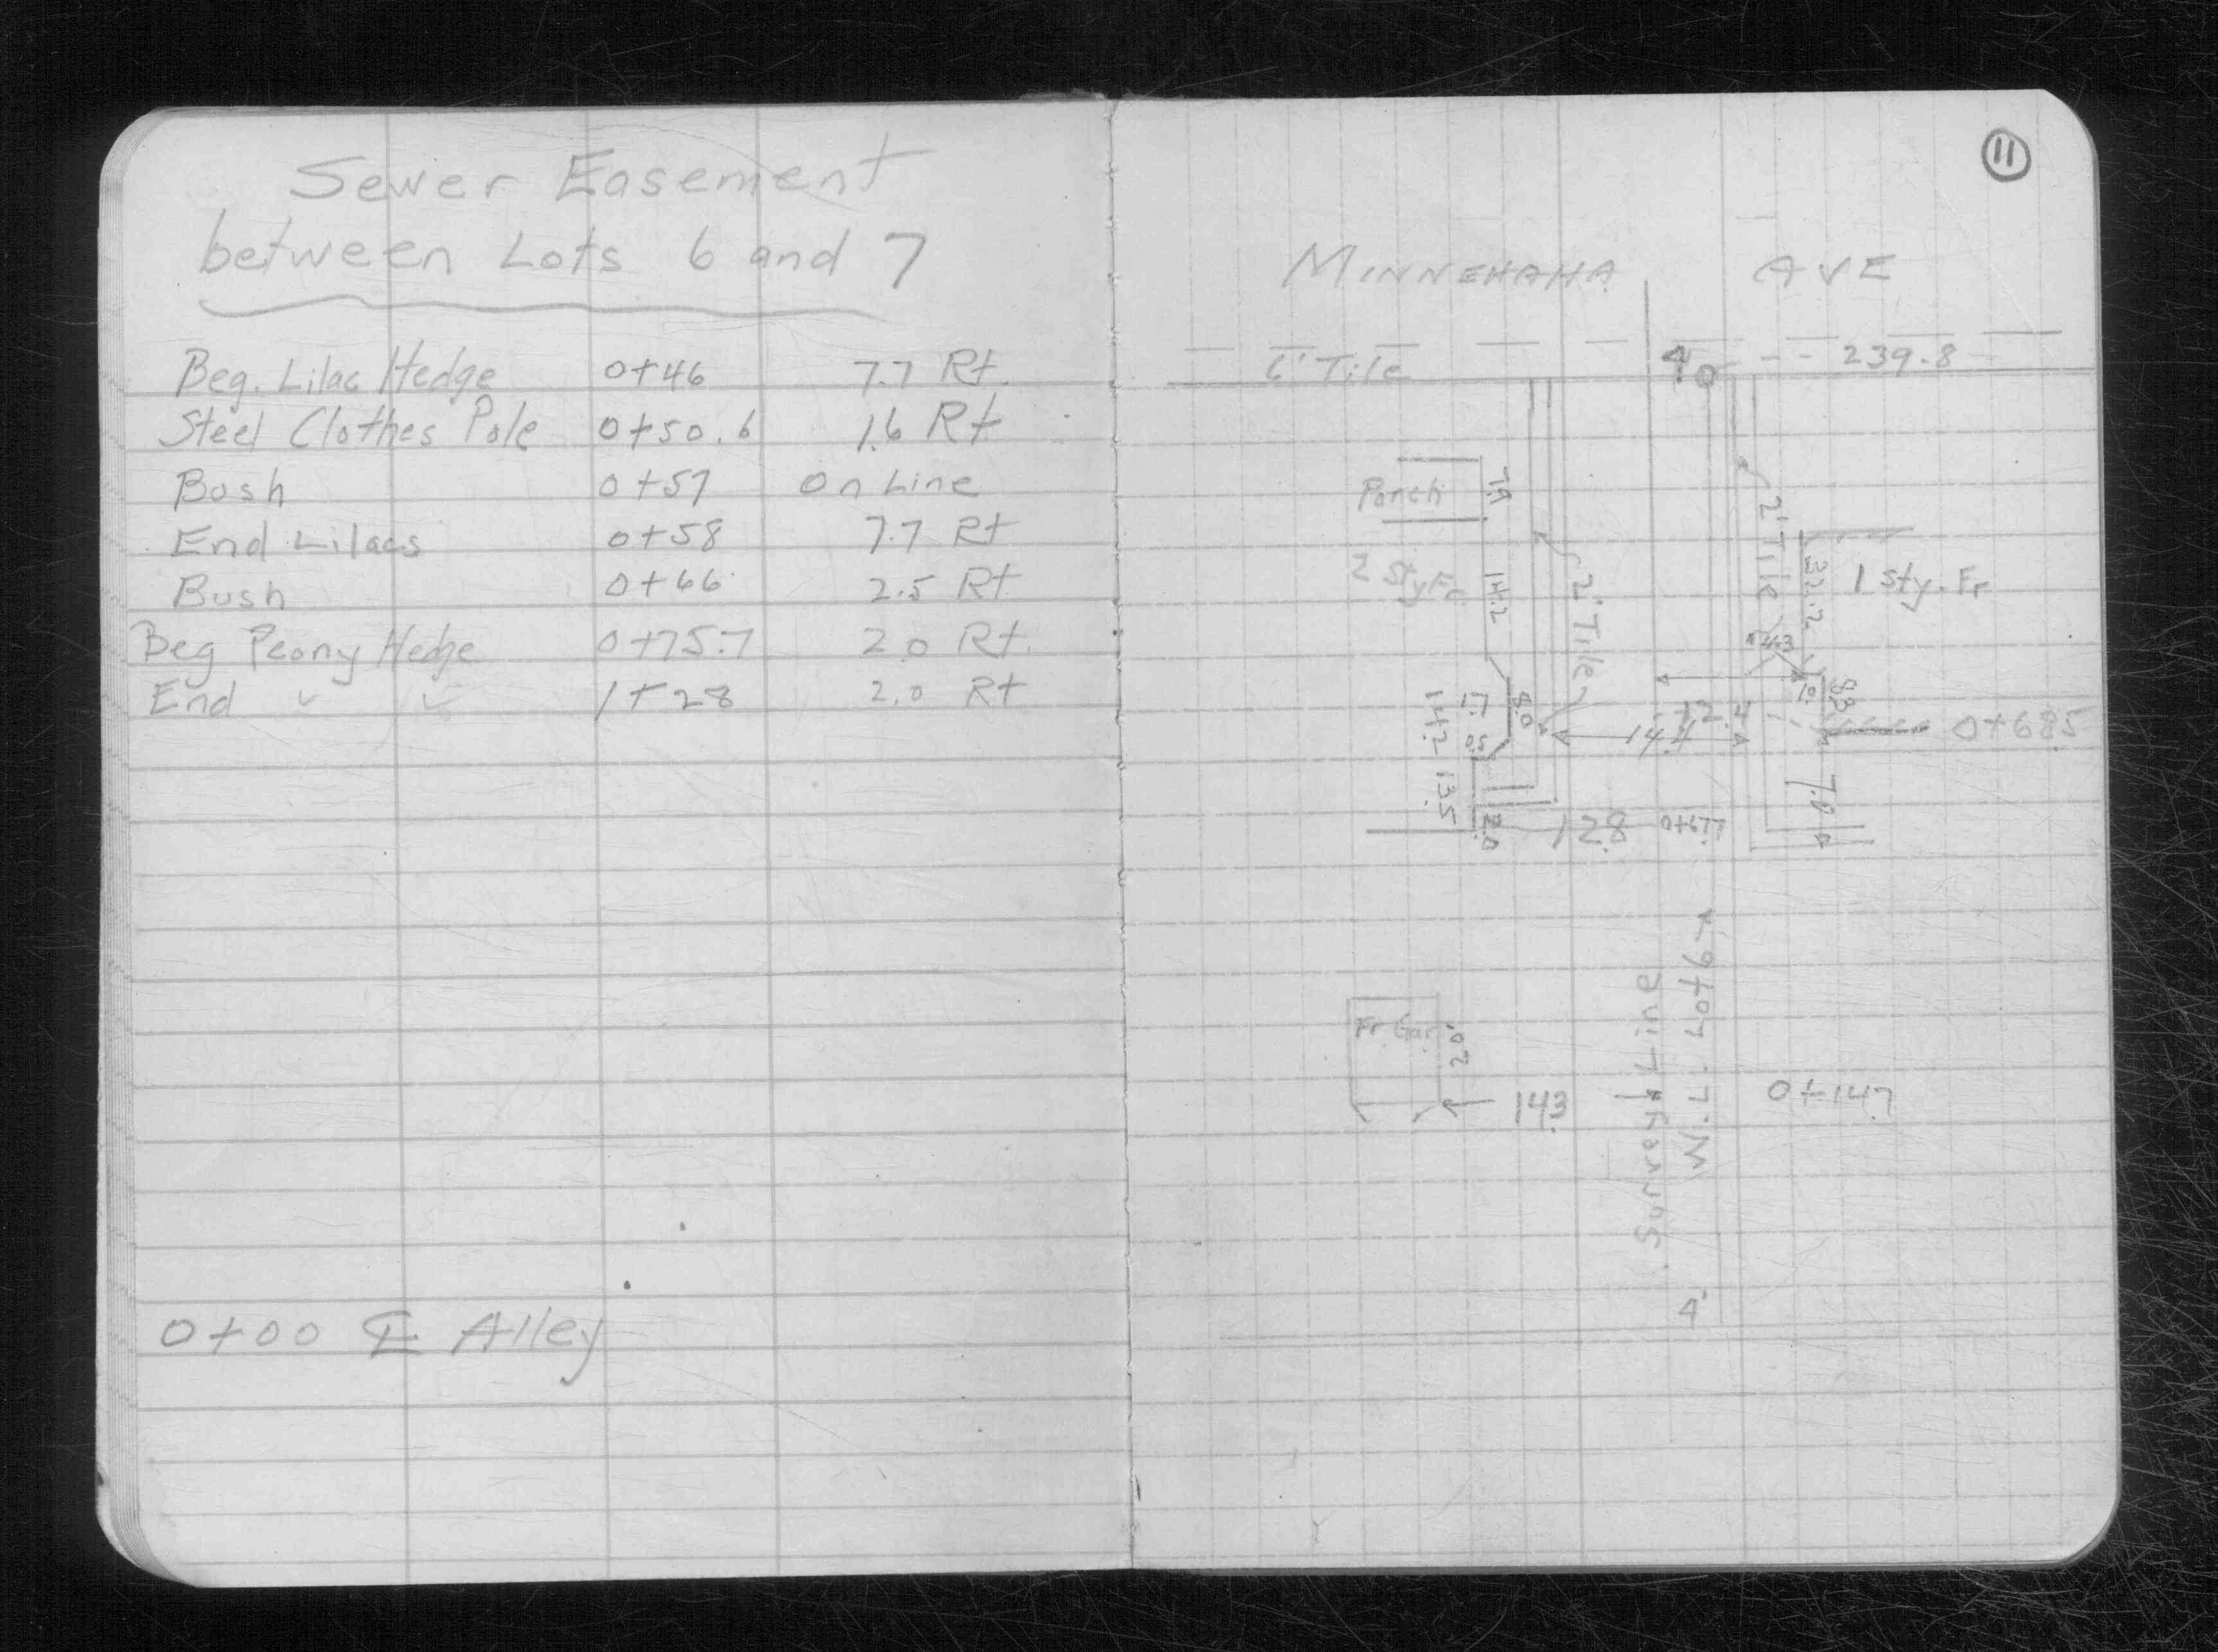 Sewer Easement
between Lots 6 and 7
Beg. Lilac Hedge 0+46 7.7 Rt.
Steel Clothes Pole 0+50.6 1.6 Rt
Bush 0+57 On Line
End Lilacs 0+58 7.7 Rt
Bush 0+66 2.5 Rt
Beg Peony Hedge 0+75.7 2.0 Rt.
End ✓ ✓ 1+28 2.0 Rt
0+00 ℄ Alley
11
MINNEHAHA AVE
6' Tile 239.8
Porch
2 Sty Fr.
14.2
2' Tile
2' Tile
32.2
1 sty. Fr
4.3
8.3
1.7
8.0
14.2
0.5
12.4
14.4
0+68.5
13.5
7.0
2.0
12.8 0+67.7
Fr. Gar.
20.
14.3
Survey Line
W. L. Lot 6
0+14.7
4'